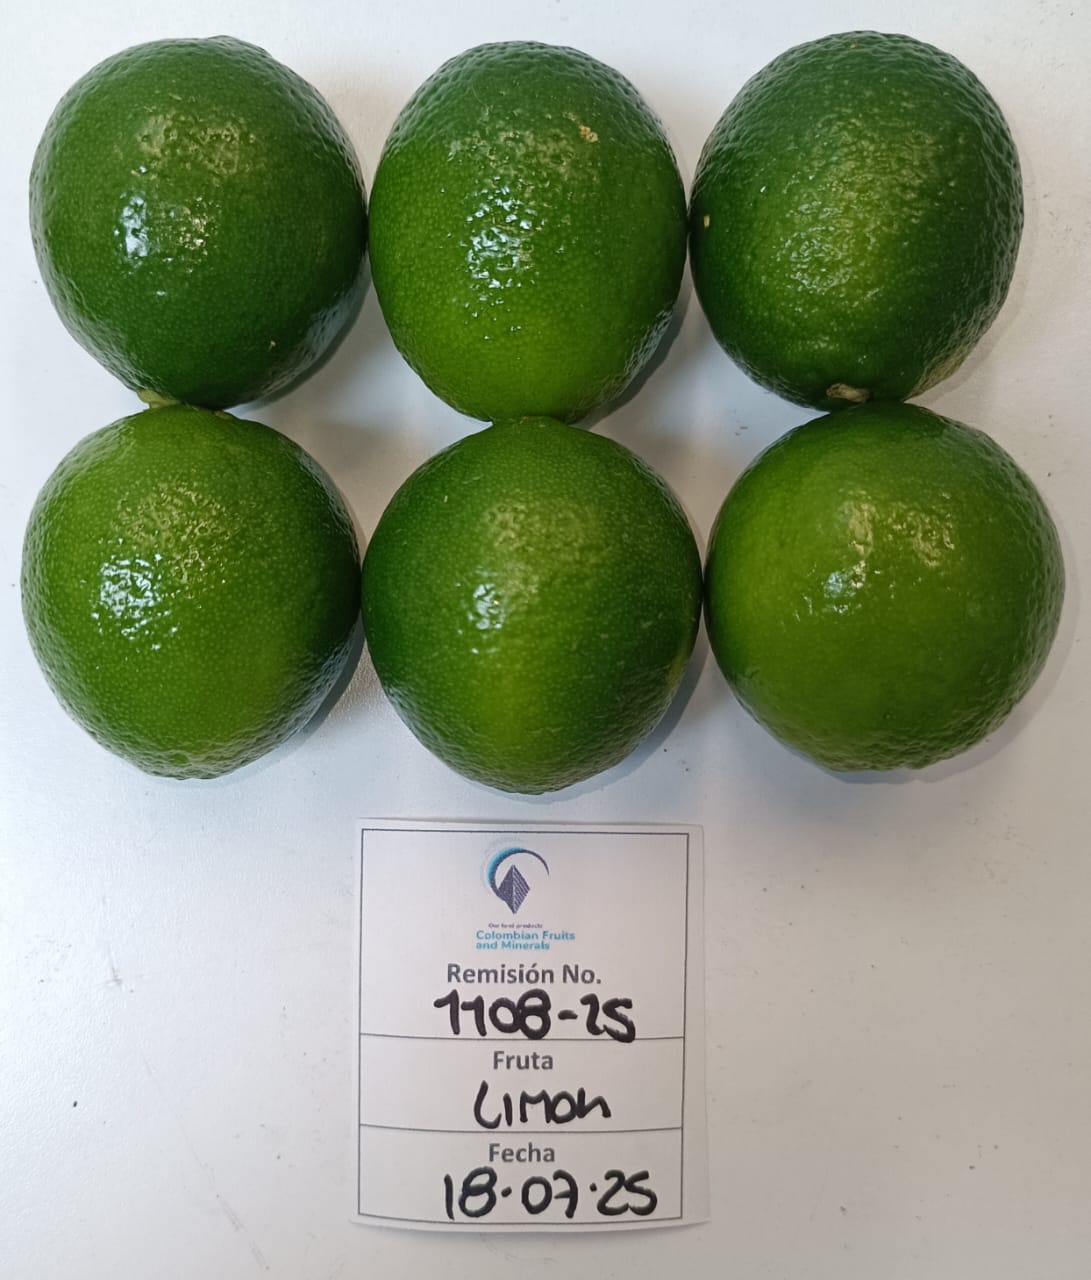 Our food products
Colombian Fruits
and Minerals
Remisión No.
1108-25
Fruta
LIMON
Fecha
18.07.25